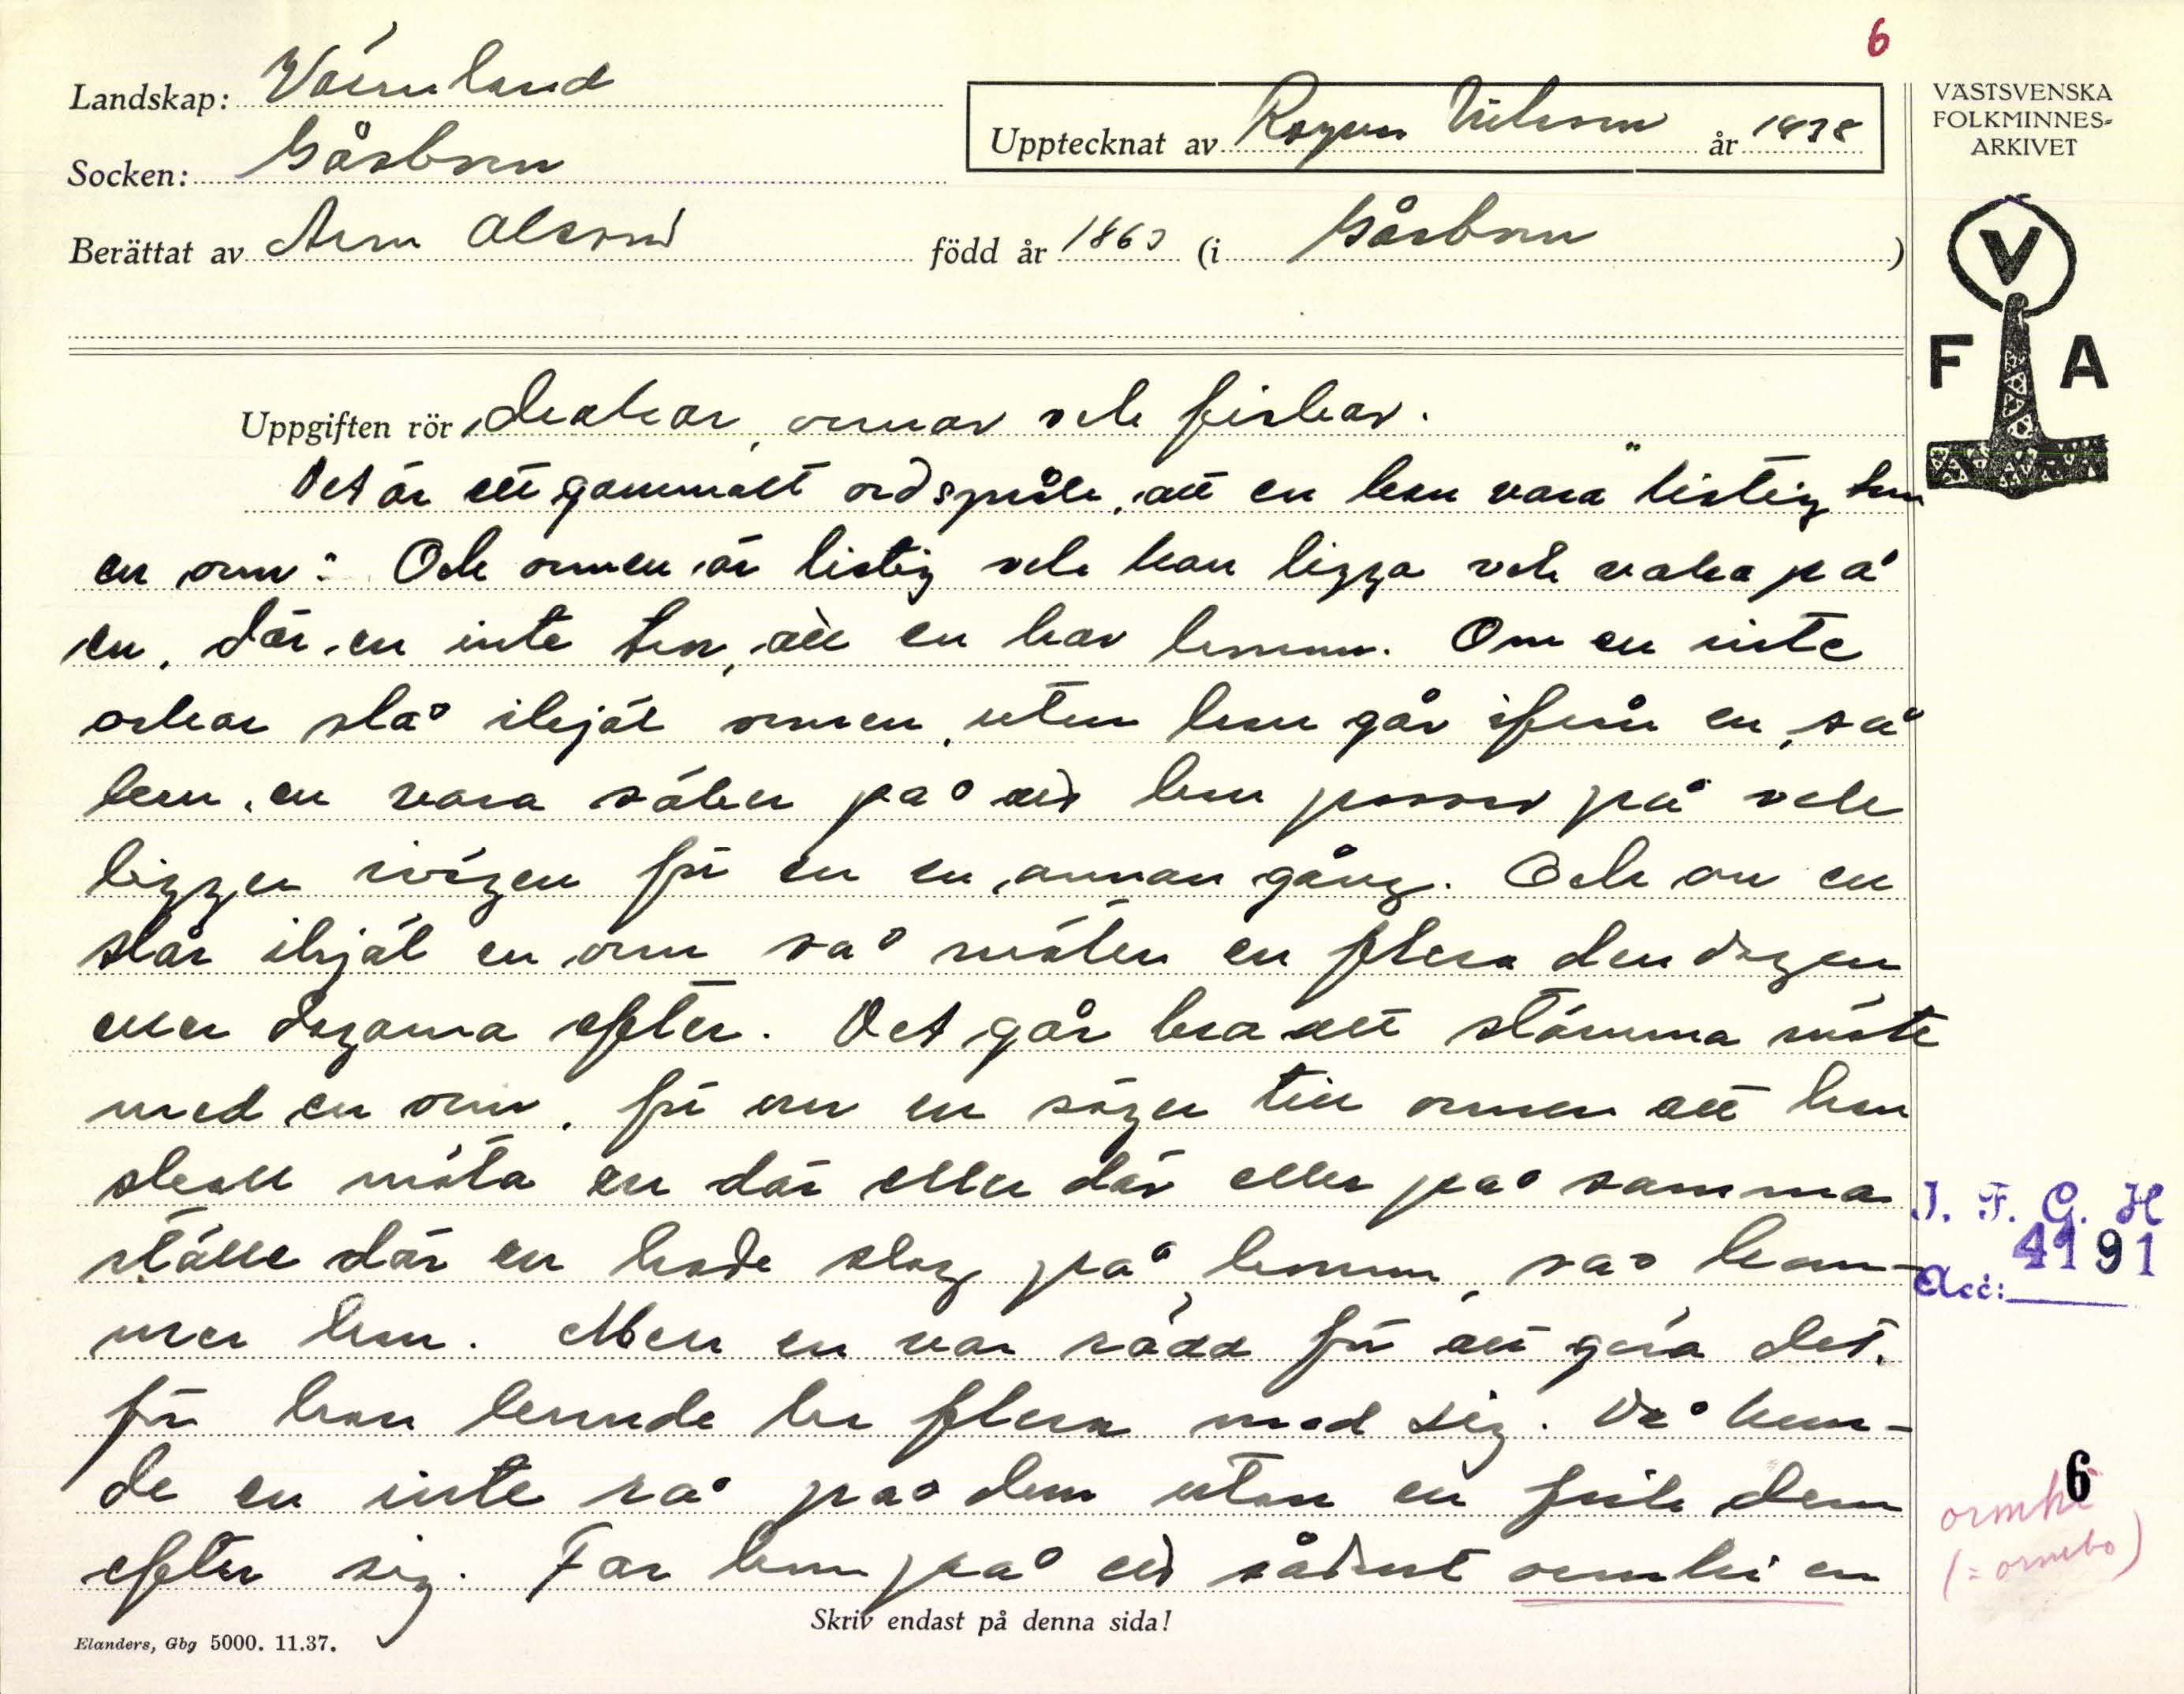 6
Landskap: Värmland
Socken: Gåsborn
Upptecknat av Ragnar Nilsson år 1938
Berättat av Olsson född år 1863 (i Gåsborn)
VÄSTSVENSKA
FOLKMINNES-
ARKIVET
V
F A
Uppgiften rör ormar och fiskar.
Det är ett gammalt ordspråk, att en kan vara "listig som
en orm". Och ormen är listig och kan ligga och vakta på
en, där en inte tror, att en har honom. Om en inte
orkar slå ihjäl ormen, utan han går ifrån en, så
kan en vara säker på att han passar på och
ligger i vägen för en en annan gång. Och om en
slår ihjäl en orm så möter en flera den dagen
eller dagarna efter. Det går bra att stämma möte
med en orm, för om en säger till ormen att han
skall möta en där eller där eller på samma
ställe där en hade slag på honom, så kom-
mer han. Men en var rädd för att göra det,
för han kunde ha flera med sig. Då kun-
de en inte rå på dem utan en fick dem
efter sig. Far kom på ett sådant ormhi en
I. F. G. H
4191
Acc:
6
ormhi
(= ormbo)
Skriv endast på denna sida!
Elanders, Gbg 5000. 11.37.